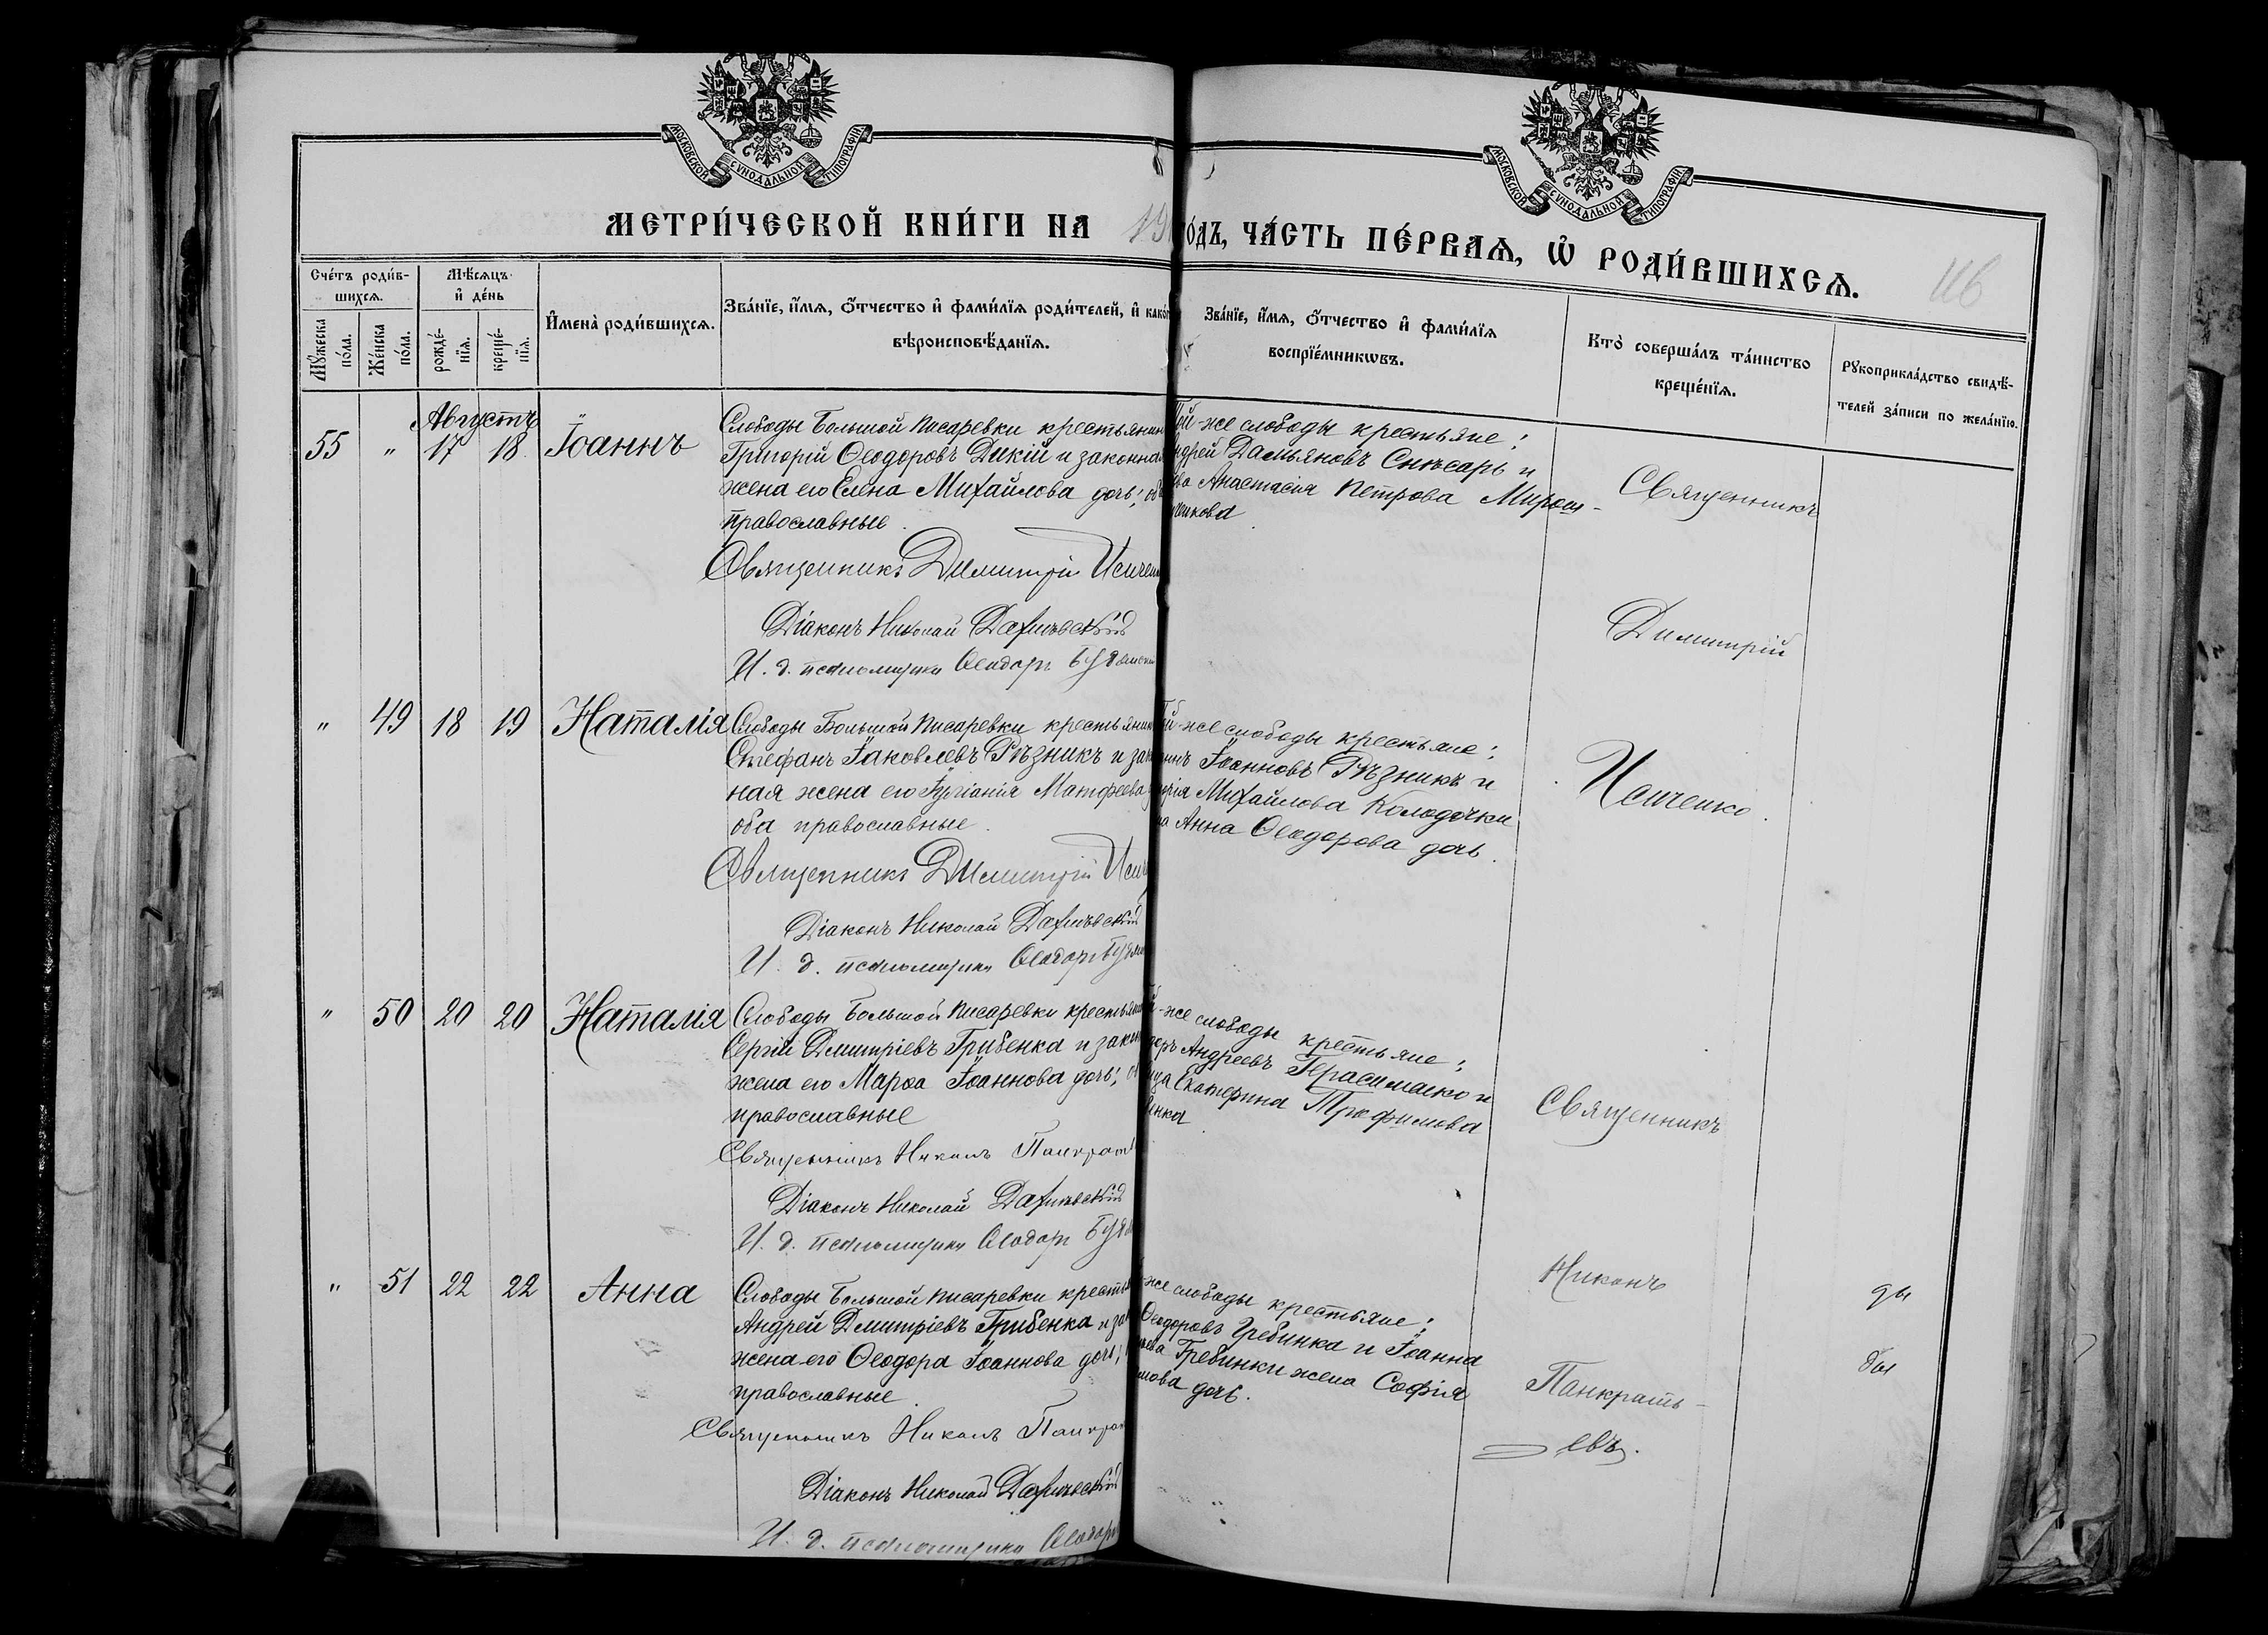 МОСКОВСКОЙ СѴНОДАЛЬНОЙ ТИПОГРАФІИ
МОСКОВСКОЙ СѴНОДАЛЬНОЙ ТИПОГРАФІИ
МЕТРИ́ЧЕСКОЙ КНИ́ГИ НА 19
О́ДЪ, ЧА́СТЬ ПЕ́РВАѦ, Ѡ҆ РОДИ́ВШИХСѦ.
116
Сче́тъ роди́в-
шихсѧ.
Мѣ́сѧцъ
и҆ де́нь
Мꙋ́жеска
по́ла.
Же́нска
по́ла.
рожде́-
нїѧ.
креще́-
нїѧ.
И҆мена̀ роди́вшихсѧ.
Зва́нїе, и҆́мѧ, ѻ҆́тчество и҆ фами́лїѧ роди́телей, и҆ како́г
вѣроисповѣ́данїѧ.
Зва́нїе, и҆́мѧ, ѻ҆́тчество и҆ фами́лїѧ
воспрїе́мникѡвъ.
Кто̀ соверша́лъ та́инство
креще́нїѧ.
Рꙋкоприкла́дство свидѣ́-
телей за́писи по жела́нїю.
Августъ
55 " 17 18 Іоаннъ
Слободы Большой Писаревки крестьянин
Григорій Ѳеодоровъ Дикій и законная
жена его Елена Михайлова дочь; об
православные.
Священникъ Димитрій Исичен
Діаконъ Николай
И. д. псаломщика Ѳеодоръ
Той-же слободы крестьяне;
ндрей Дамьяновъ Снѣсарь и
Анастасія Петрова Мирош-
никова
Священникъ
Димитрій
Исиченко.
" 49 18 19 Наталія
Слободы Большой Писаревки крестьянин
Стефанъ Іаковлевъ Рѣзникъ и зак
ная жена его Іуліанія Матфеева
оба православные.
Священникъ Димитрій Исич
Діаконъ Николай
И. д. псаломщика Ѳеодоръ
й-же слободы крестьяне;
Іоанновъ Рѣзникъ и
Михайлова Колодочки
на Анна Ѳеодорова дочь.
" 50 20 20 Наталія
Слободы Большой Писаревки крестьяни
Сергій Димитріевъ Грибенка и закон
жена его Марѳа Іоаннова дочь; о
православные
Священникъ Никонъ Панкрат
Діаконъ Николай
И. д. псаломщика Ѳеодоръ
-же слободы крестьяне;
доръ Андреевъ Герасименко и
Екатерина Трофимова
енка.
Священникъ
Никонъ
Панкрать-
евъ.
" 51 22 22 Анна
Слободы Большой Писаревки кресть
Андрей Димитріевъ Грибенка и за
жена его Ѳеодора Іоаннова дочь;
православные.
Священникъ Никонъ Панкра
Діаконъ Николай
И. д. псаломщика Ѳеодоръ
-же слободы крестьяне;
Ѳеодоровъ Гребинка и Іоанна
Гребинки жена Софія
мова дочь.